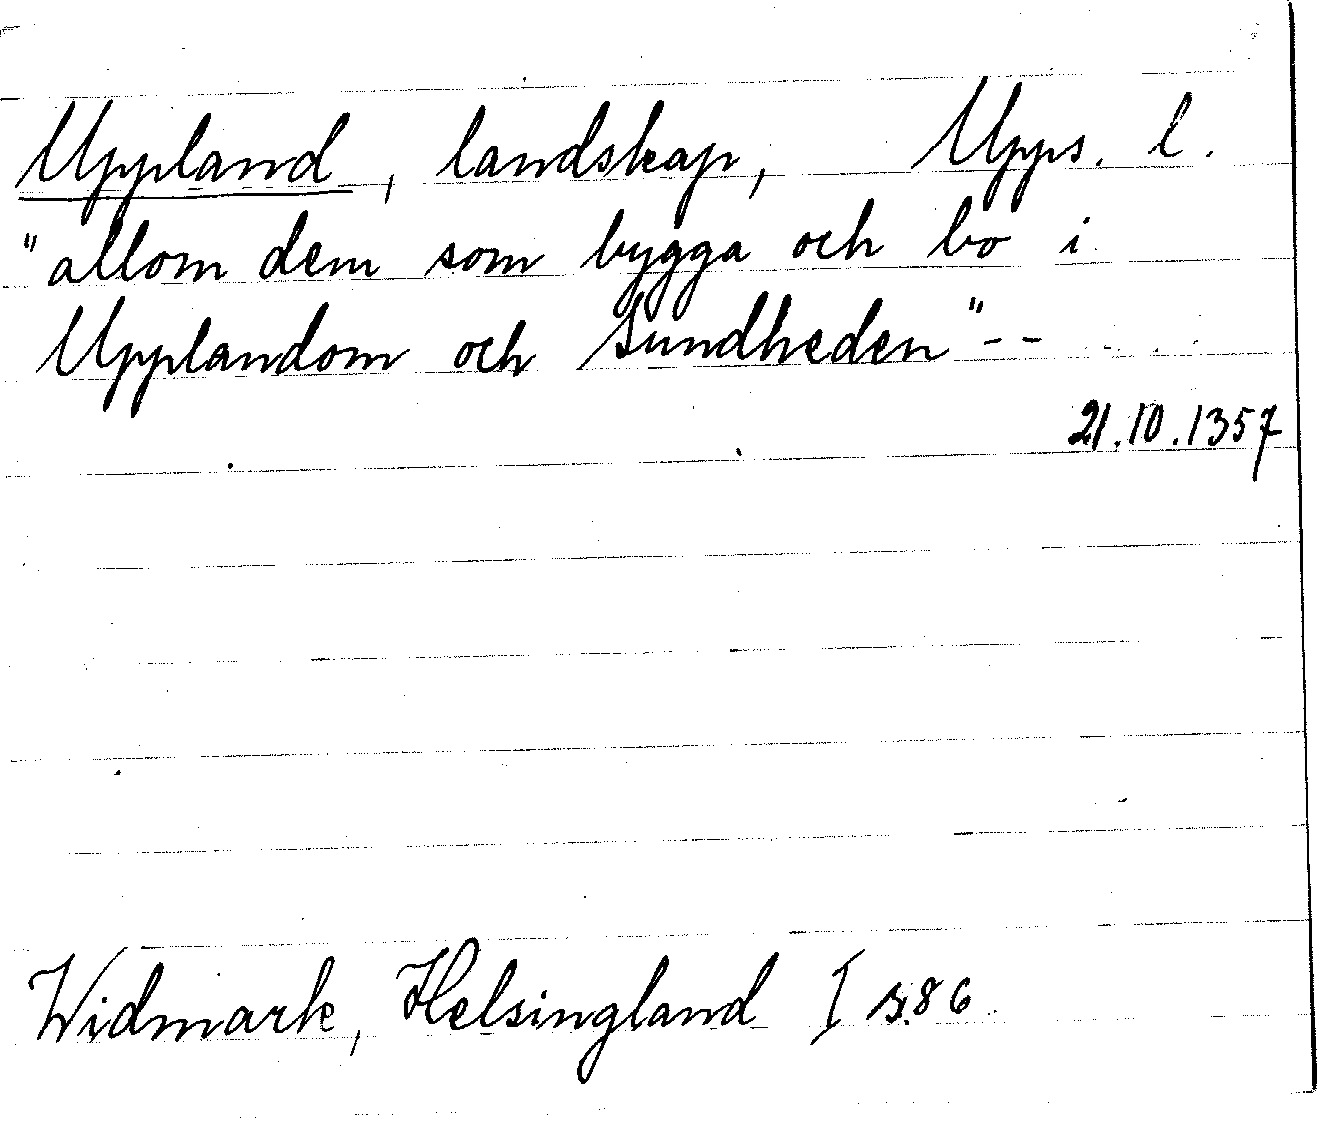 Uppland, landskap, Upps. l.
"allom dem som bygga och bo i
Upplandom och Sundheden" - -
21.10.1357
Widmark, Helsingland I s. 86